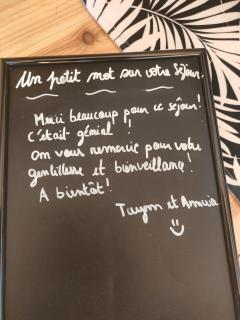 Un petit mot sur votre séjour.
Merci beaucoup pour ce séjour!
C'était génial!
On vous remercie pour votre
gentillesse et bienveillance!
A bientôt!
et